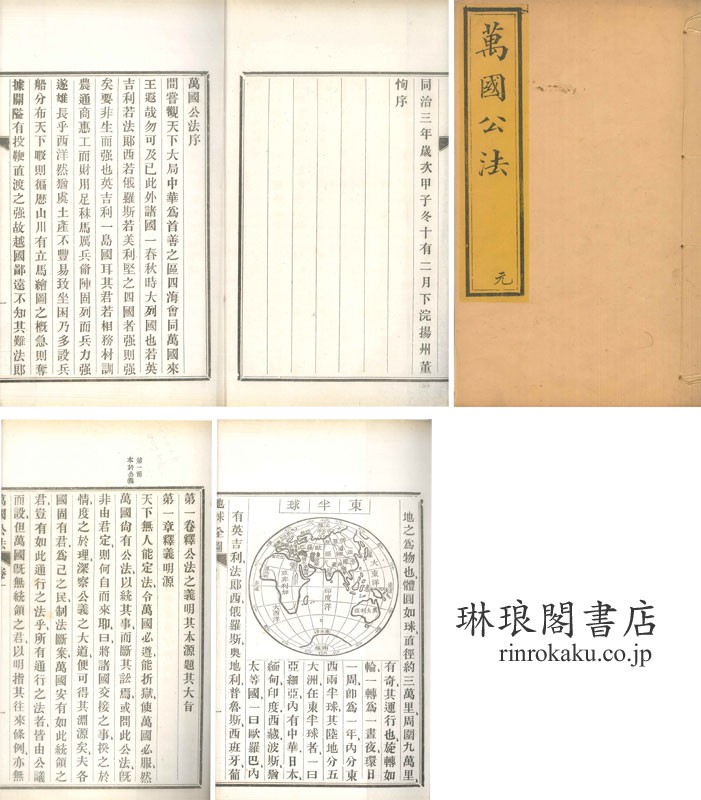 萬國公法
元
同治三年歲次甲子冬十有二月下浣揚州董
恂序
萬國公法序
間嘗觀天下大局中華爲首善之區四海會同萬國來
王遐哉勿可及已此外諸國一春秋時大列國也若英
吉利若法郎西若俄羅斯若美利堅之四國者强則强
矣要非生而强也英吉利一島國耳其君若相務材訓
農通商惠工而財用足秣馬厲兵脩陣固列而兵力强
遂雄長乎西洋然猶虞土產不豐易致坐困乃多設兵
船分布天下暇則循厯山川有立馬繪圖之概急則奪
據關隘有投鞭直渡之强故越國鄙遠不知其難法郎
一
地之爲物也體圓如球直徑約三萬里周圍九萬里
有奇其運行也旋轉如
輪一轉爲一晝夜環日
一周卽爲一年內分東
西兩半球其陸地分五
大洲在東半球者一曰
亞細亞內有中華日本
緬甸印度西藏波斯猶
太等國一曰歐羅巴內
有英吉利法郎西俄羅斯奧地利普魯斯西班牙葡
東半球
大東洋
印度洋
大西洋
地球全圖
第一卷釋公法之義明其本源題其大旨
第一章釋義明源
第一節
本於公義
天下無人能定法令萬國必遵能折獄使萬國必服然
萬國尙有公法以統其事而斷其訟焉或問此公法旣
非由君定則何自而來耶曰將諸國交接之事揆之於
情度之於理深察公義之大道便可得其淵源矣夫各
國固有君爲己之民制法斷案萬國安有如此統領之
君豈有如此通行之法乎所有通行之法者皆由公議
而設但萬國旣無統領之君以明指其往來條例亦無
萬國公法 卷一
琳琅閣書店
rinrokaku.co.jp